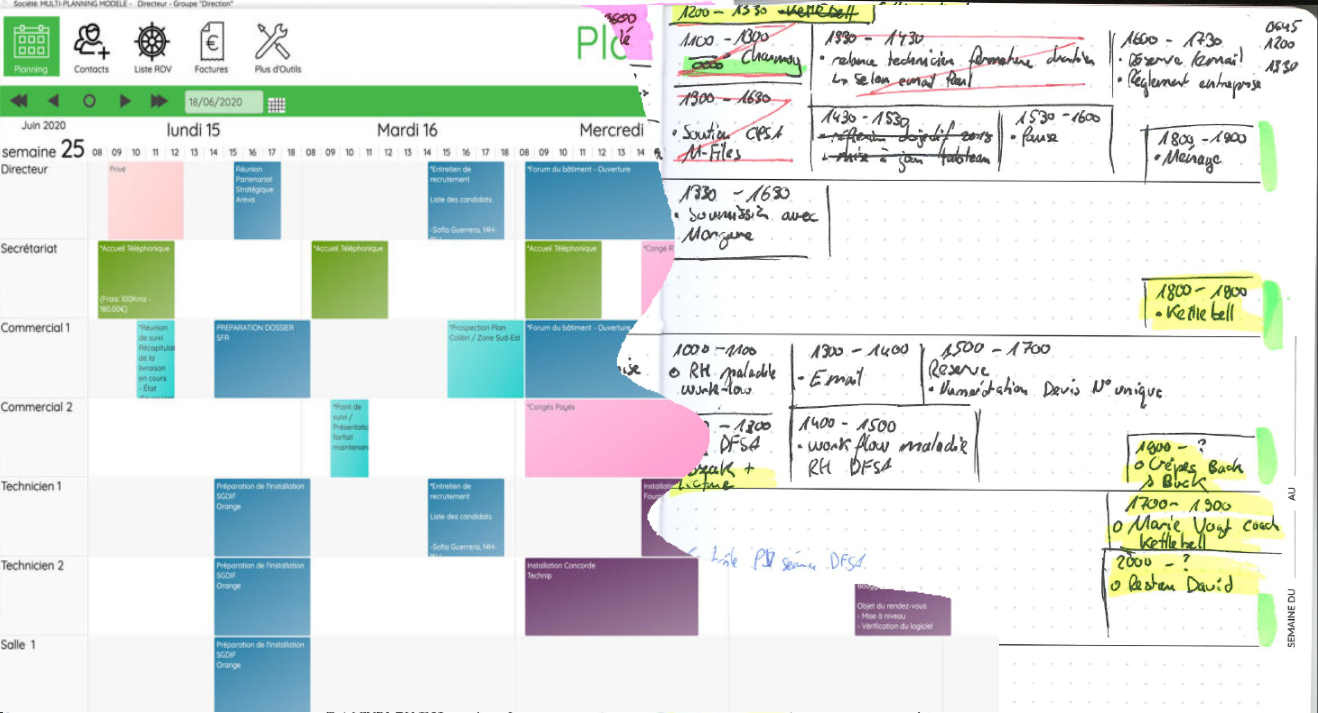 Société: MULTI-PLANNING MODELE - Directeur - Groupe "Direction"
Planning
Contacts
Liste RDV
Factures
Plus d'Outils
18/06/2020
Juin 2020
semaine 25
lundi 15
Mardi 16
Mercredi
08 09 10 11 12 13 14 15 16 17 18
08 09 10 11 12 13 14 15 16 17 18
08 09 10 11 12 13 14
Directeur
Privé
Réunion
Partenariat
Stratégique
Areva
*Entretien de
recrutement
Liste des candidats
-Sofia Guerrero, 14H-
*Forum du bâtiment - Ouverture
Secrétariat
*Accueil Téléphonique
(Frais: 100Kms -
180,00€)
*Accueil Téléphonique
*Accueil Téléphonique
*Congé
Commercial 1
*Réunion
de suivi
Récapitulat
de la
livraison
en cours
- État
PREPARATION DOSSIER
SFR
*Prospection Plan
Colibri / Zone Sud-Est
*Forum du bâtiment - Ouverture
Commercial 2
*Point de
suivi /
Présentatio
forfait
maintenan
*Congés Payés
Technicien 1
Préparation de l'installation
SGDIF
Orange
*Entretien de
recrutement
Liste des candidats
-Sofia Guerrero, 14H-
Technicien 2
Préparation de l'installation
SGDIF
Orange
Installation Concorde
Technip
Objet du rendez-vous
- Mise à niveau
- Vérification du logiciel
Salle 1
Préparation de l'installation
SGDIF
Orange
1200 - 1330 Kettlebell
1100 - 1300
Charmoy
1330 - 1430
• relance technicien fermeture
↳ selon email Paul
1600 - 1730
• Réserve /email
• Règlement entreprise
0645
1200
1330
1300 - 1630
• Soutien CPSA
M-Files
1430 - 1530
1530 - 1600
• Pause
1800 - 1900
• Ménage
1330 - 1630
• Soumission avec
Morgane
1800 - 1900
• Kettlebell
1000 - 1100
o RH maladie
work-flow
1300 - 1400
• Email
1500 - 1700
Réserve
• Numérotation Devis N° unique
- 1300
DFSA
Break +
Lecture
1400 - 1500
• work flow maladie
RH DFSA
1900 - ?
o Crêpes Bach
& Buck
1700 - 1900
o Marie Vogt coach
Kettlebell
séance DFSA
2000 - ?
o Restau David
AU
SEMAINE DU